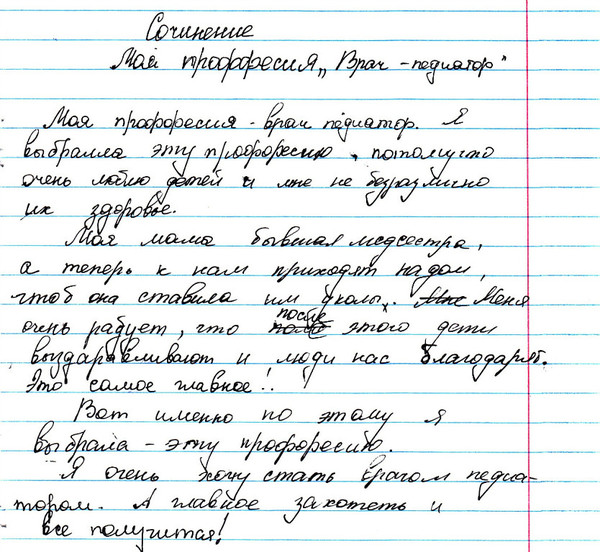 Сочинение
Мая профофесия „Врач - педиатор"
Мая профофесия - врач педиатор. Я
выбралла эту профофесию, потомучто
очень люблю детей и мне не безразлично
их здоровье.
Мая мама бывшая медсестра,
а теперь к нам приходят на дом,
чтоб она ставила им уколы. Мне Меня
очень радует, что после этого дети
выздаравливают и люди нас благодарят.
Это самое главное!!!
Вот именно по этаму я
выбрала - эту профофесию.
Я очень хочу стать врачом педиа-
тором. А главное захотеть и
все получится!